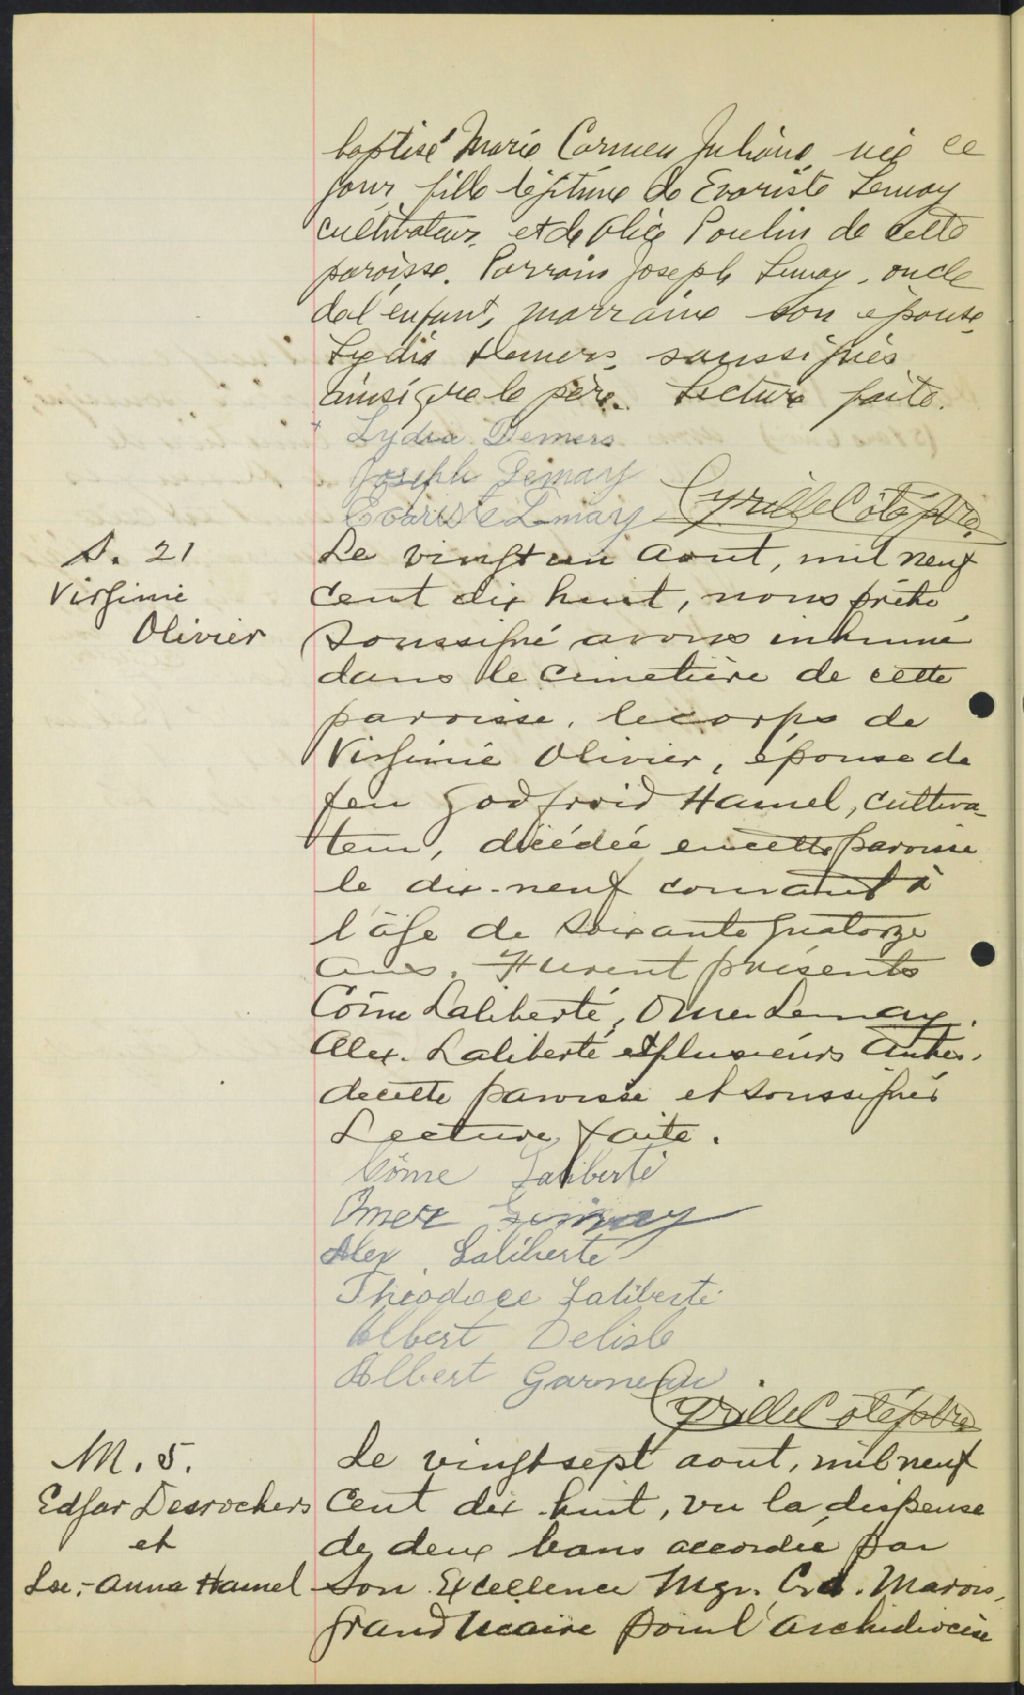 baptisé Marie Carmen Juliane née ce
jour, fille légitime de Evariste Lemay
cultivateur, et de Alice Poulin de cette
paroisse. Parrain Joseph Lemay, oncle
de l'enfant, marraine son épouse
Lydia Demers, soussignés
ainsi que le père. Lecture faite.
Lydia Demers
Joseph Lemay
Evariste Lemay Cyrille Côté, ptre
S. 21
Virginie
Olivier
Le vingt un aout, mil neuf
cent dix huit, nous prêtre
soussigné avons inhumé
dans le cimetière de cette
paroisse, le corps de
Virginie Olivier, épouse de
feu Godfroid Hamel, cultiva-
teur, décédée en cette paroisse
le dix-neuf courant à
l'âge de soixante quatorze
ans. Furent présents
Côme Laliberté, Omer Lemay.
Alex. Laliberté et plusieurs autres.
de cette paroisse et soussignés
Lecture faite.
Côme Laliberté
Omer Lemay
Alex. Laliberté
Théodore Laliberté
Albert Delisle
Albert Garneau
Cyrille Côté, ptre
M. 5.
Edgar Desrochers
et
Lse.-Anna Hamel
Le vingt sept aout, mil neuf
cent dix huit, vu la dispense
de deux bans accordée par
Son Excellence Mgr. Marois,
grand Vicaire pour l'archidiocèse